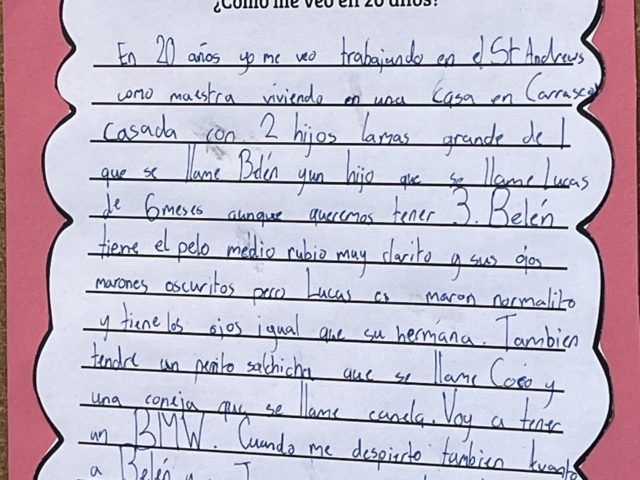 ¿Cómo me veo en 20 años?
En 20 años yo me veo trabajando en el St Andrews
como maestra viviendo en una casa en Carrasco
casada con 2 hijos la mas grande de 1
que se llame Belén y un hijo que se llame Lucas
de 6 meses aunque queremos tener 3. Belén
tiene el pelo medio rubio muy clarito y sus ojos
marones oscuritos pero Lucas es maron normalito
y tiene los ojos igual que su hermana. Tambien
tendre un perrito salchicha que se llame Coco y
una coneja que se llame canela. Voy a tener
un BMW. Cuando me despierto tambien levanto
a Belén